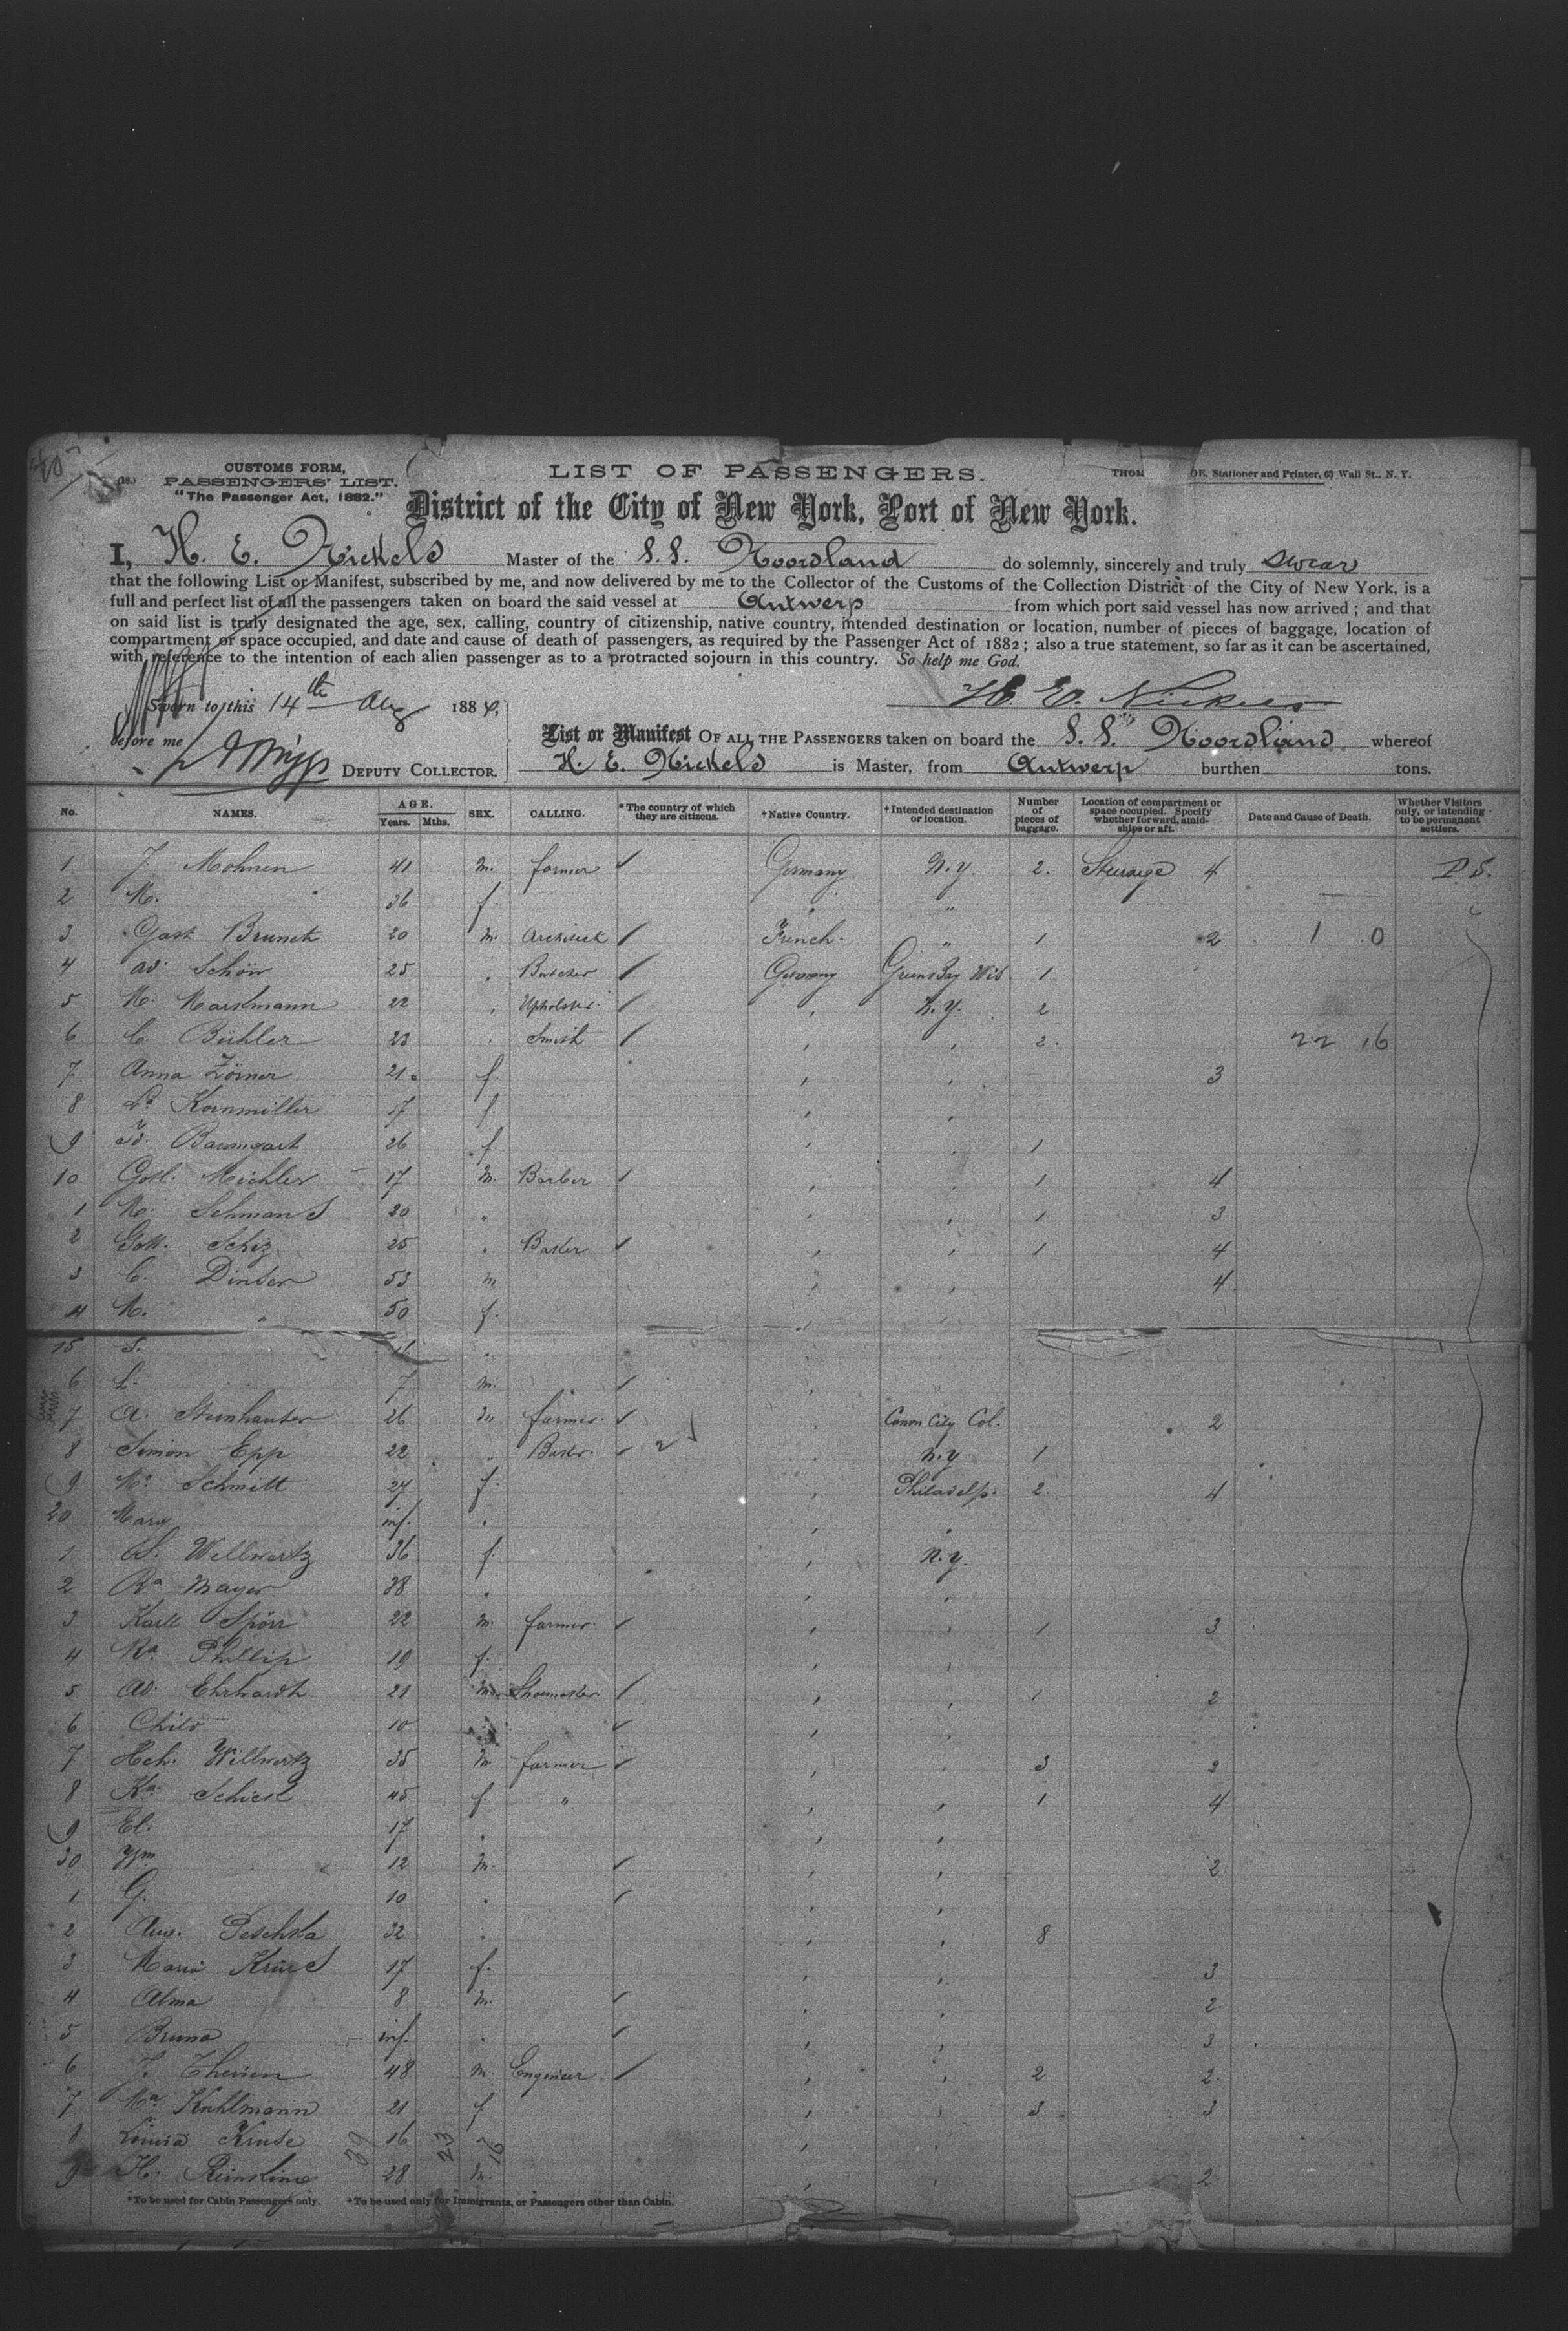 CUSTOMS FORM,
PASSENGERS' LIST.
"The Passenger Act, 1882."
LIST OF PASSENGERS.
THOM OE, Stationer and Printer, 63 Wall St., N. Y.
District of the City of New York, Port of New York.
I, H. E. Nickels Master of the S.S. Noordland do solemnly, sincerely and truly swear
that the following List or Manifest, subscribed by me, and now delivered by me to the Collector of the Customs of the Collection District of the City of New York, is a
full and perfect list of all the passengers taken on board the said vessel at Antwerp from which port said vessel has now arrived; and that
on said list is truly designated the age, sex, calling, country of citizenship, native country, intended destination or location, number of pieces of baggage, location of
compartment or space occupied, and date and cause of death of passengers, as required by the Passenger Act of 1882; also a true statement, so far as it can be ascertained,
with reference to the intention of each alien passenger as to a protracted sojourn in this country. So help me God.
Sworn to this 14th Aug 1884,
H. E. Nickels
before me
DEPUTY COLLECTOR.
List or Manifest OF ALL THE PASSENGERS taken on board the S.S. Noordland whereof
H. E. Nickels is Master, from Antwerp burthen tons.
No. NAMES. AGE. Years. Mths. SEX. CALLING. *The country of which they are citizens. †Native Country. †Intended destination or location. Number of pieces of baggage. Location of compartment or space occupied. Specify whether forward, amidships or aft. Date and Cause of Death. Whether Visitors only, or intending to be permanent settlers.
1 J. Mohnen 41 m. farmer Germany N.Y. 2. Steerage 4 P.S.
2 M. " 36 f. " "
3 Gast Brunck 20 m. Architect French. " 1 2 1 0
4 Ad. Schön 25 Butcher Germany Greens Bay Wis. 1
5 M. Marxmann 22 Upholster. N.Y. 2
6 C. Bühler 23 Smith 2. 22 16
7 Anna Zörner 21 f. 3
8 Kornmüller 17 f.
9 Baumgart 26 f. 1
10 Gotl. Michler 17 m. Barber 1 4
1 M. 20 1 3
2 Gott. Schiz 25 Baker 1 4
3 C. Dinser 53 m 4
4 M. 50 f.
15 S. 16
6 L. 7 m.
7 A. Steinhauser 26 m farmer. Canon City Col. 2
8 Simon Epp 22 Baker. 2 N.Y 1
9 Schmitt 27 f. Philadelp. 2. 4
20 Mary inf.
1 S. Wellwertz 36 f. N.Y.
2 Ra Mayer 38
3 Karl Spörr 22 m. farmer. 1 3
4 Phillip 19 f.
5 Ad. Ehrhardt 21 m. Shoemaker. 1 2
6 Child 10
7 Hch. Willwertz 35 m farmer 3 2
8 Ka. Schiesl 45 f " 1 4
9 El. 17
30 12 m. 2.
1 G. 10
2 Aug. Peschka 32 8
3 Maria 17 f. 3
4 Alma 8 m. 2.
5 Bruno inf. 3
6 J. Theisen 48 m Engineer 2 2.
7 Ma Kuhlmann 21 f 3 3
8 Louisa Kruse 16
9 H. 28 m. 2
39 23 16
*To be used for Cabin Passengers only. †To be used only for Immigrants, or Passengers other than Cabin.